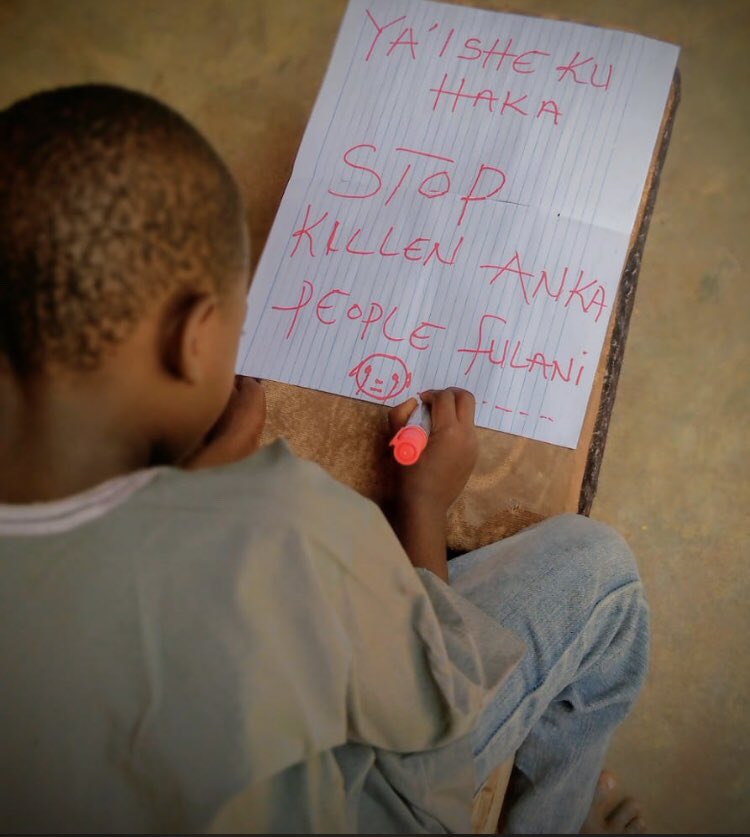 YA'ISHE KU
HAKA
STOP
KILLEN ANKA
PEOPLE fULANi